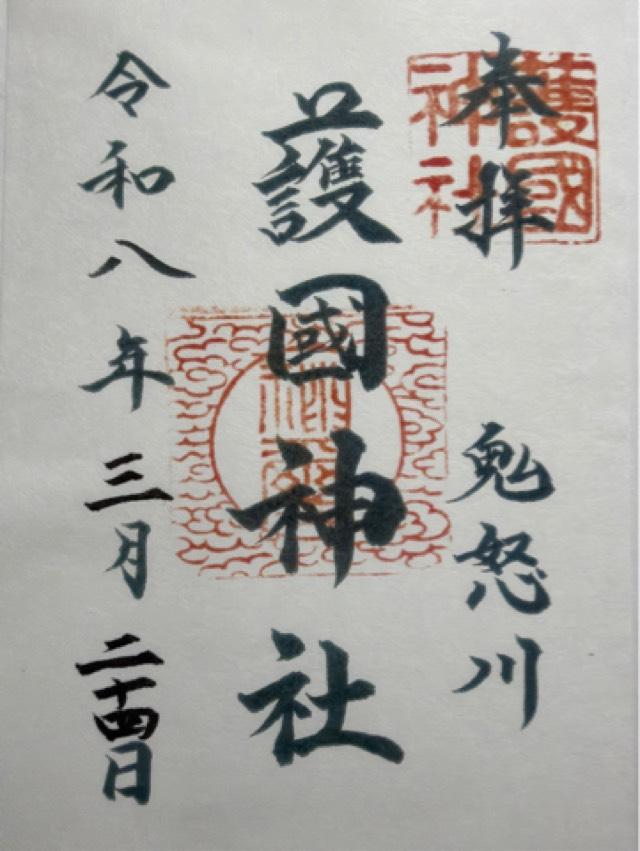 奉拝
鬼怒川
護國神社
護國神社
令和八年三月二十四日